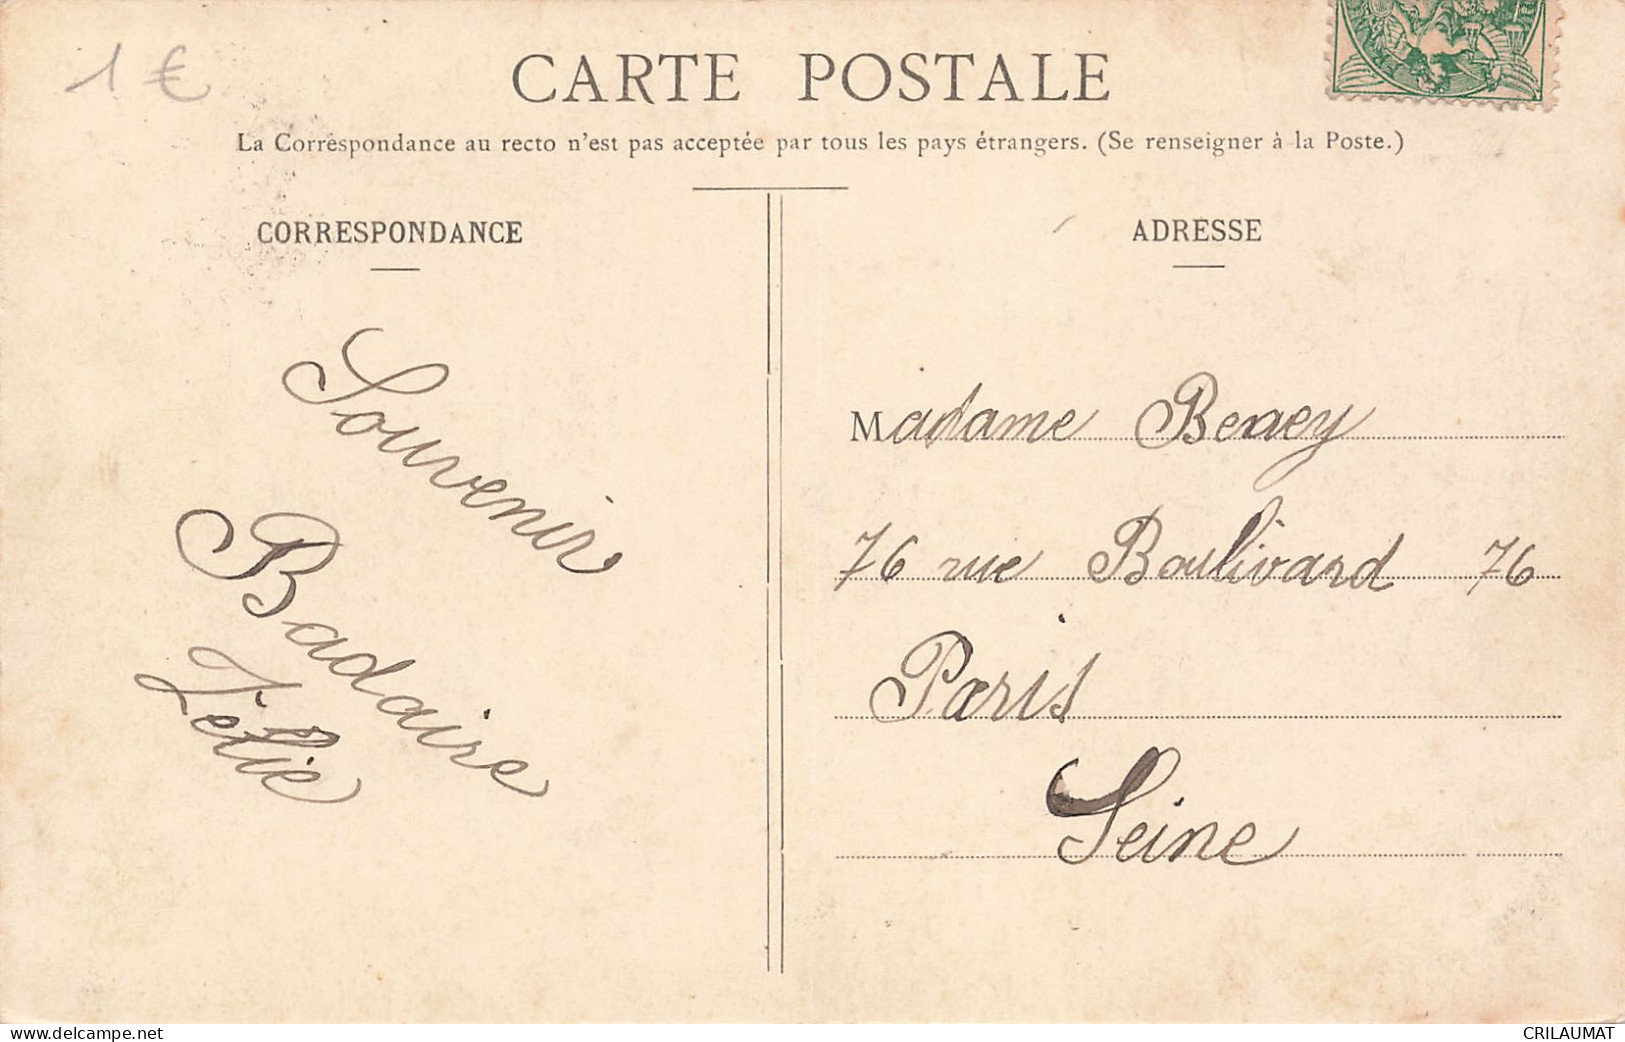 1 €
CARTE POSTALE
La Correspondance au recto n'est pas acceptée par tous les pays étrangers. (Se renseigner à la Poste.)
CORRESPONDANCE
Souvenir
Badaire
Zelie
ADRESSE
Madame
76 rue Boulivard 76
Paris
Seine
www.delcampe.net
CRILAUMAT